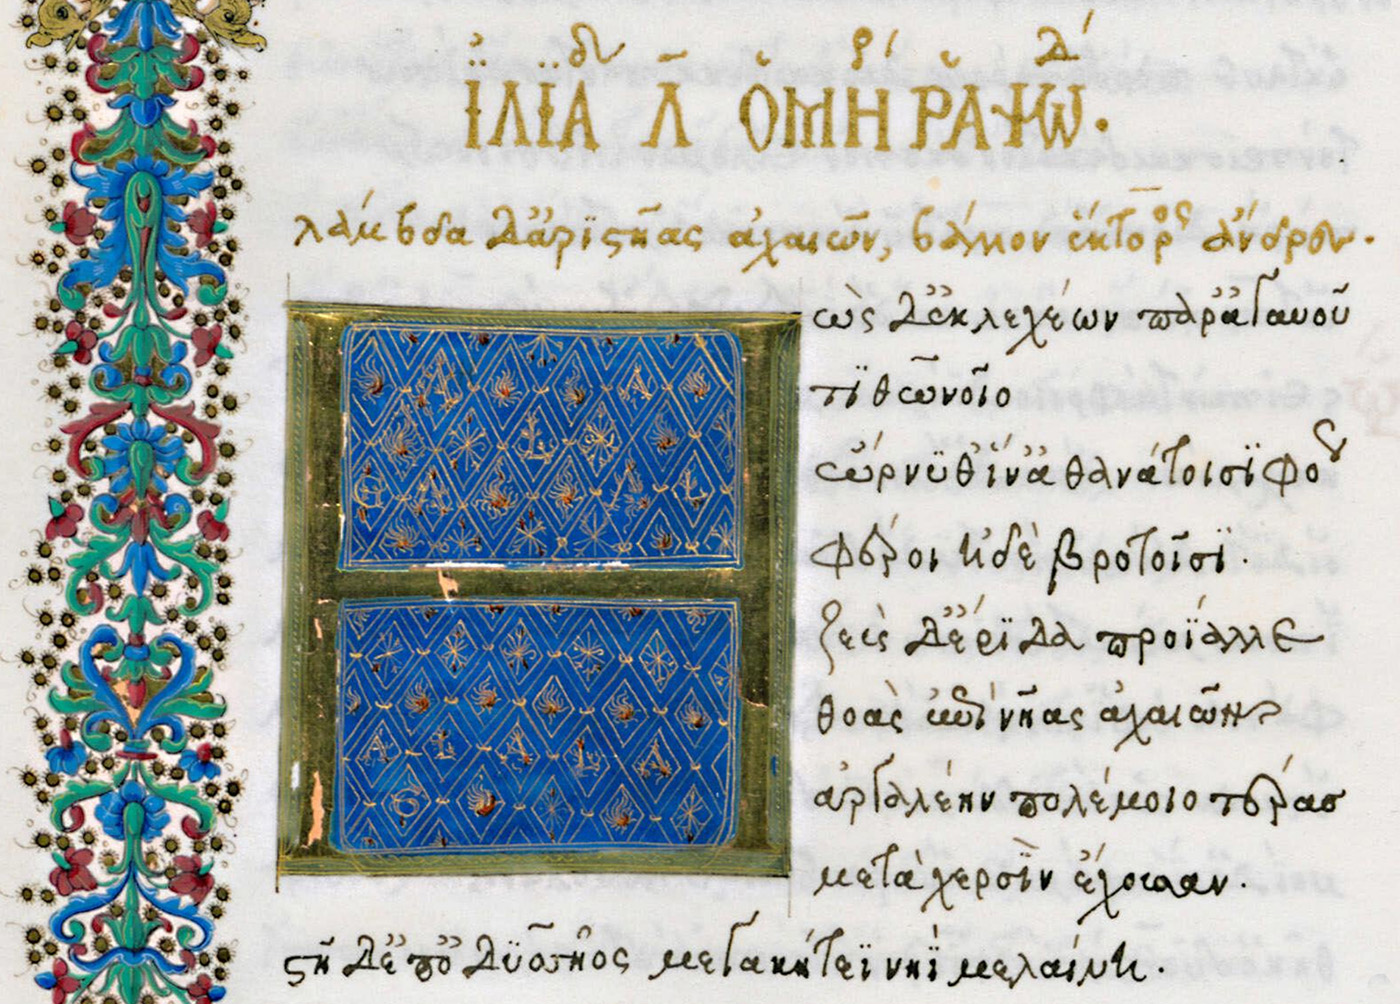 ἸΛΙΑΔ Λ ὉΜΗΡ ΡΑΨΩΔ.
λάμβδα δ' ἀριστῆας ἀχαιῶν, βάλον ἕκτορος ἄνδρες.
Ηὼς δ' ἐκ λεχέων παρ' ἀγαυοῦ
τϊθωνοῖο
ὤρνϋθ' ἵν' ἀθανάτοισϊ φόως
φέροι ἠδὲ βροτοῖσϊ.
ζεὺς δ' ἔρϊδα προΐαλλε
θοὰς ἐπὶ νῆας ἀχαιῶν
ἀργαλέην πολέμοιο τέρας
μετὰ χερσῒν ἔχουσαν.
στῆ δ' ἐπ' ὀδϋσσῆος μεγακήτεϊ νηῒ μελαίνη.